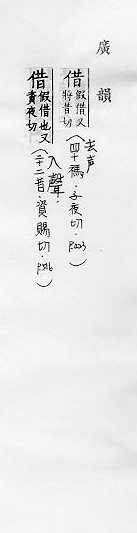 廣韻
借 假借又將昔切 去声(四十禡·子夜切·P423)
借 假借也又資夜切 入聲:(二十二昔·資賜切·P516)